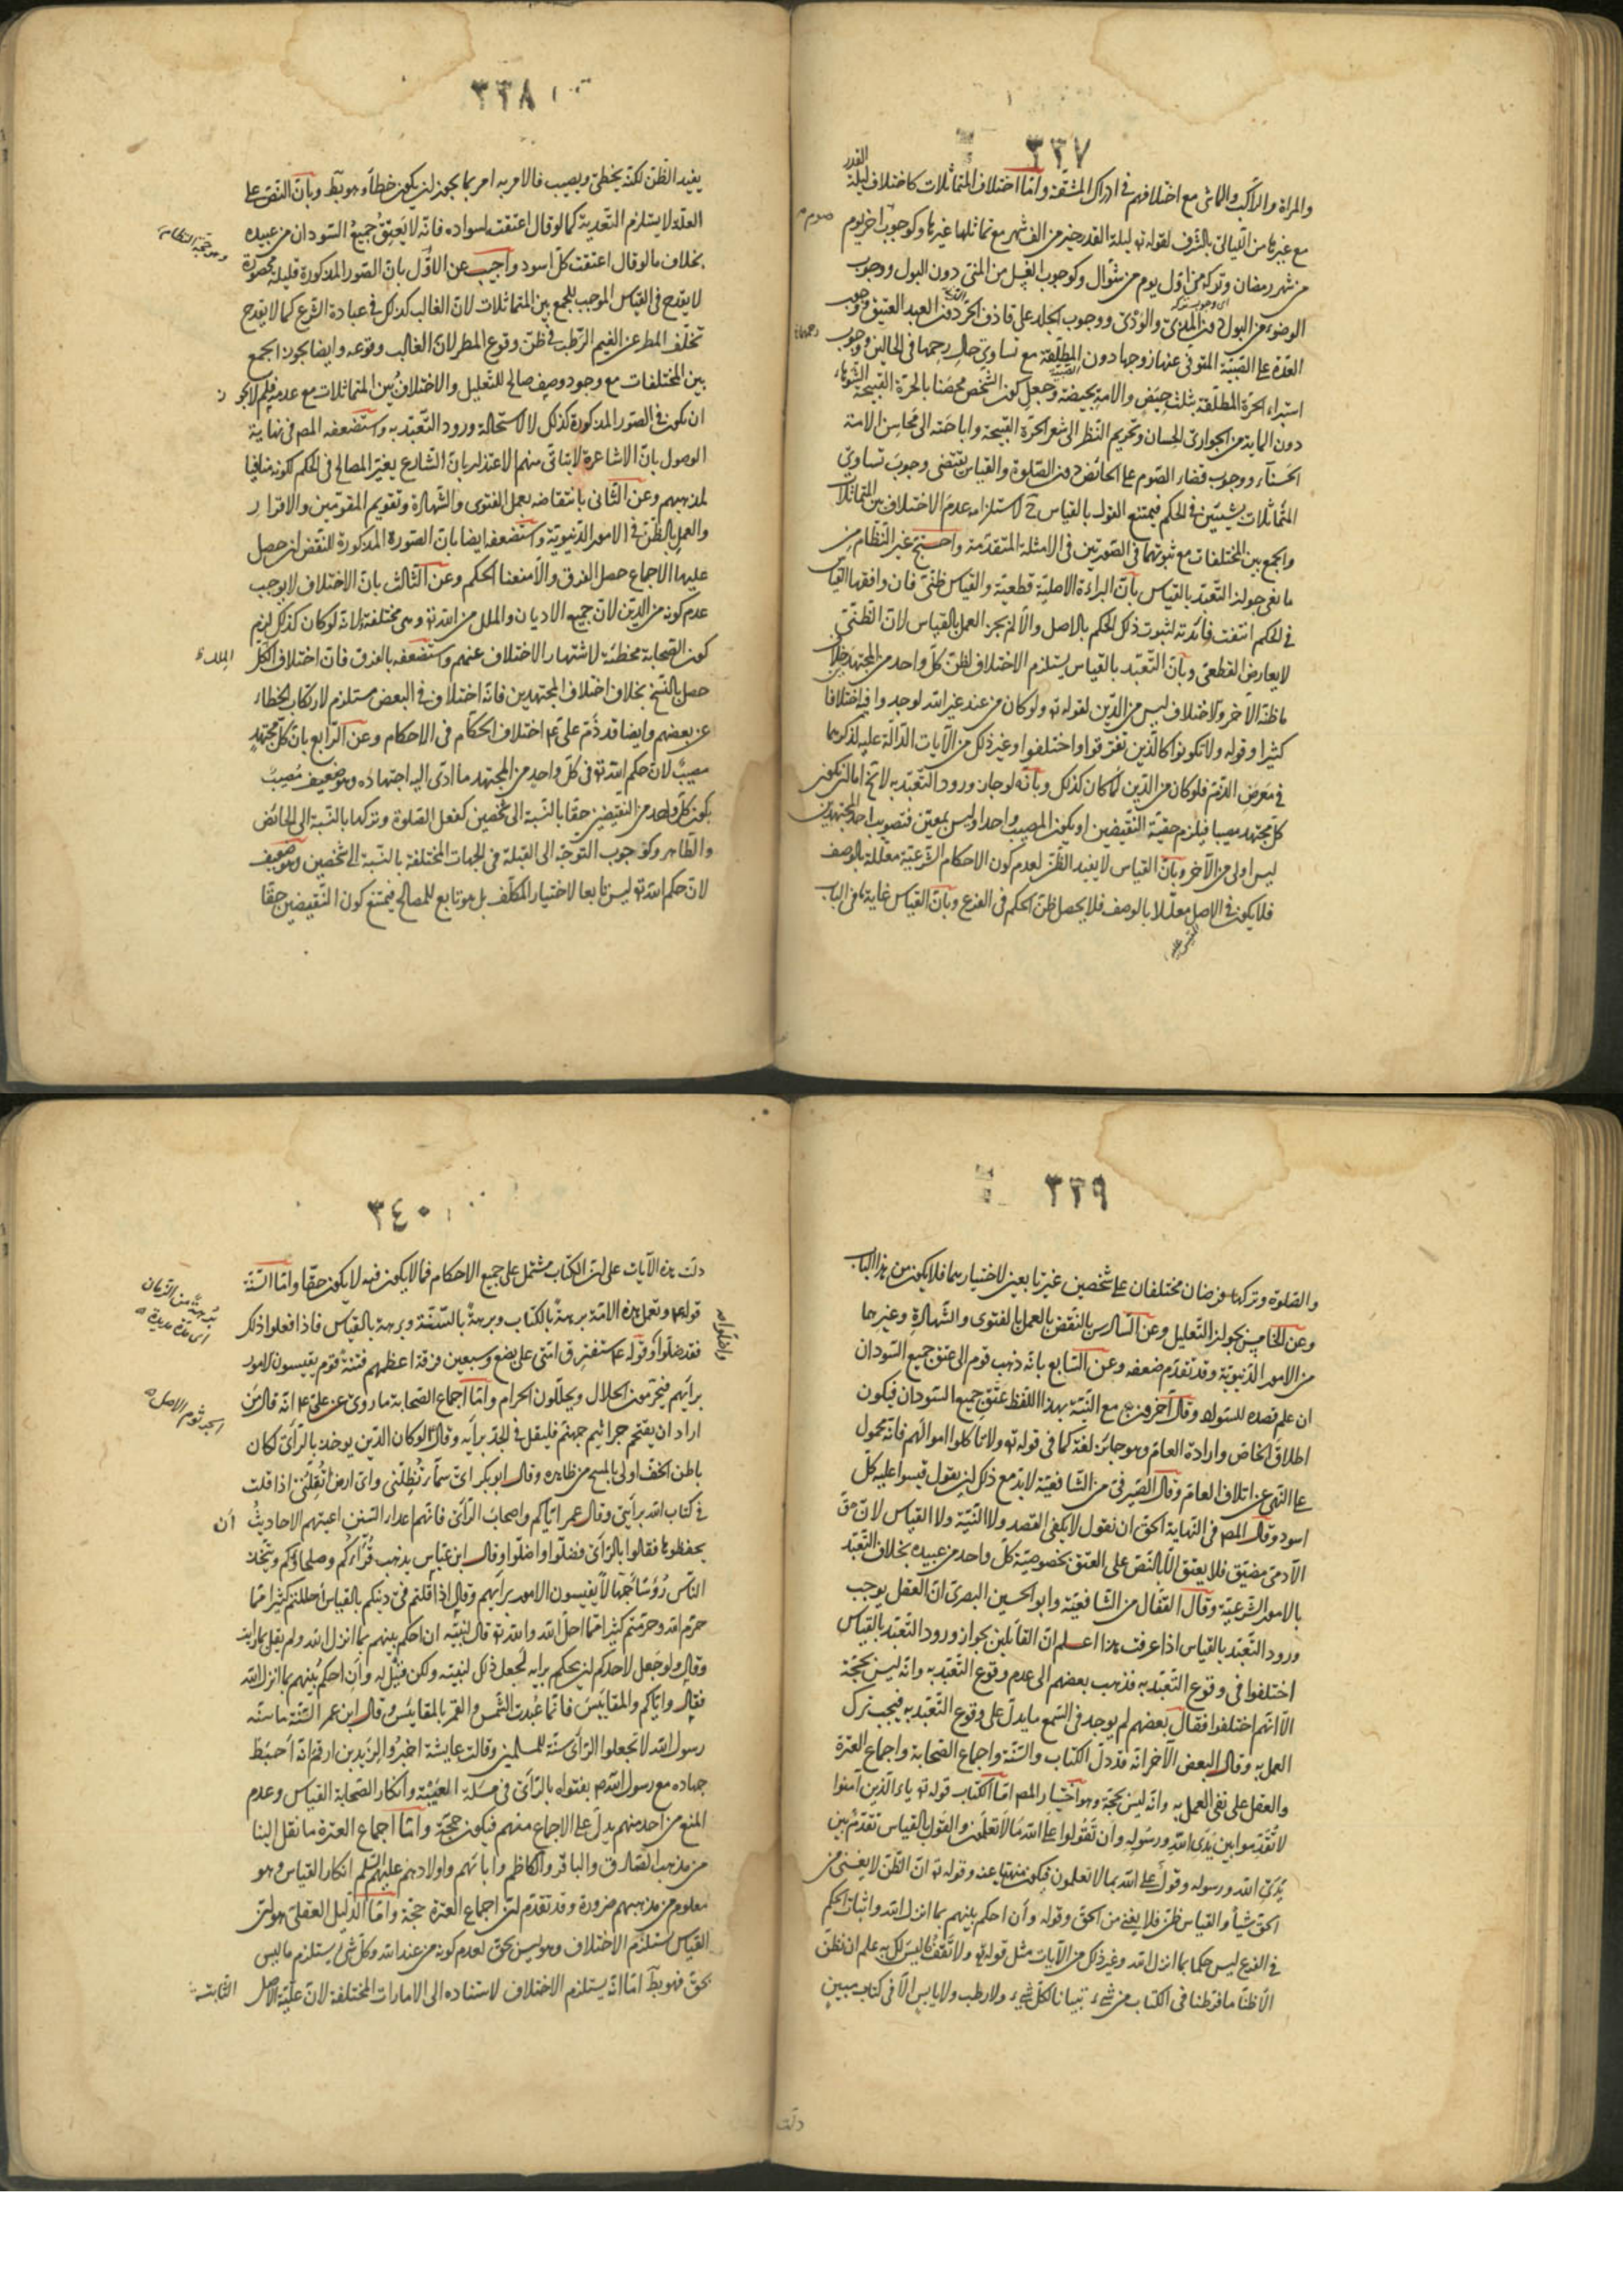 ٣٣٧
والمراة والراكب والماشى مع اختلافهم فى ادراك المشقة واما اختلاف المتماثلات كاختلاف ليلة القدر
مع غيرها من الليالى بالشرف لقوله تع ليلة القدر خير من الف شهر مع تماثلها غيرها وكوجوب صوم اخر يوم
من شهر رمضان وتركه من اول يوم من شوال وكوجوب الغسل من المنى دون البول ووجوب
الوضوء من البول دون المذى والوذى ووجوب الجلد على قاذف الحر دون العبد العتيق ووجوب
العدة على الصبية المتوفى عنها زوجها دون المطلقة مع تساوى حال رحمها فى الحالين ووجوب
استبراء الحرة المطلقة بثلث حيض والامة بحيضة وجعل كون الشخص محصنا بالحرة القبيحة الشوهاء
دون الماية من الجوارى الحسان وتحريم النظر الى شعر الحرة القبيحة واباحته الى محاسن الامة
الحسناء ووجوب قضاء الصوم على الحائض دون الصلوة والقياس يقتضى وجوب تساوى
المتماثلات شيئين فى الحكم فيمتنع القول بالقياس ح لاستلزامه عدم الاختلاف بين المتماثلات
والجمع بين المختلفات مع ثبوتهما فى الصورتين فى الامثلة المتقدمة واحتج غير النظام من
مانعى جواز التعبد بالقياس بان البراءة الاصلية قطعية والقياس ظنى فان وافقها القياس
فى الحكم انتفت فائدته لثبوت ذلك الحكم بالاصل والا لم يجز العمل بالقياس لان الظنى
لا يعارض القطعى وبان التعبد بالقياس يستلزم الاختلاف لظن كل واحد من المجتهدين خلاف
ما ظنه الاخر والاختلاف ليس من الدين لقوله تع ولو كان من عند غير الله لوجدوا فيه اختلافا
كثيرا وقوله ولا تكونوا كالذين تفرقوا واختلفوا وغير ذلك من الآيات الدالة عليه لذكرها
فى معرض الذم فلو كان من الدين لما كان كذلك وبانه لو جاز ورود التعبد به لا يخ اما ان يكون
كل مجتهد مصيبا فيلزم حقية النقيضين او يكون المصيب واحدا وليس بمعين فتصويب احد المجتهدين
ليس اولى من الآخر وبان القياس لا يفيد الظن لعدم كون الاحكام الشرعية معللة بالوصف
فلا يكون فى الاصل معللا بالوصف فلا يحصل ظن الحكم فى الفرع وبان القياس غاية ما فى الباب
٣٣٨
يفيد الظن لكنه يخطئ ويصيب فالامر به امر بما يجوز ان يكون خطأ وهو بط وبان النص على
العلة لا يستلزم التعدية كما لو قال اعتقت لسواده فانه لا يعتق جميع السودان من عبيده
وهو حجة النظام
بخلاف ما لو قال اعتقت كل اسود واجيب عن الاول بان الصور المذكورة قليلة محصورة
لا يقدح فى القياس الموجب للجمع بين المتماثلات لان الغالب كذلك فى عبادة الشرع كما لا يقدح
تخلف المطر عن الغيم الرطب فى ظن وقوع المطر لان الغالب وقوعه وايضا يجوز الجمع
بين المختلفات مع وجود وصف صالح للتعليل والاختلاف بين المتماثلات مع عدمه فلم لا يجوز
ان يكون فى الصور المذكورة كذلك لا لاستحالة ورود التعبد به واستضعفه المص فى نهاية
الوصول بان الاشاعرة لا يتاتى منهم الاعتذار بان الشارع يعتبر المصالح فى الحكم لكونه منافيا
لمذهبهم وعن الثانى بانتقاضه بعمل الفتوى والشهادة وتقويم المقومين والاقرار
والعمل بالظن فى الامور الدنيوية واستضعفه ايضا بان الصورة المذكورة للنقض ان حصل
عليها الاجماع حصل الفرق والا منعنا الحكم وعن الثالث بان الاختلاف لا يوجب
عدم كونه من الدين لان جميع الاديان والملل من الله تع وهى مختلفة ولانه لو كان كذلك لزم
كون الصحابة مخطئة لاشتهار الاختلاف عنهم واستضعفه بالفرق فان اختلاف الملل
حصل بالنسخ بخلاف اختلاف المجتهدين فانه اختلاف فى البعض مستلزم لارتكاب الخطاء
عن بعضهم وايضا قد ذم على ع اختلاف الحكام فى الاحكام وعن الرابع بان كل مجتهد
مصيب لان حكم الله تع فى كل واحد من المجتهد ما ادى اليه اجتهاده وهو ضعيف مصيب
يكون كل واحد من النقيضين حقا بالنسبة الى شخصين كفعل الصلوة وتركها بالنسبة الى الحائض
والطاهر وكوجوب التوجه الى القبلة فى الجهات المختلفة بالنسبة الى شخصين وهو ضعيف
لان حكم الله تع ليس تابعا لاختيار المكلف بل هو تابع للمصالح فيمتنع كون النقيضين حقا
٣٣٩
والصلوة وتركها فرضان مختلفان على شخصين غير تابعين لاختيارهما فلا يكون من هذا الباب
وعن الخامس بجواز التعليل وعن السادس بالنقض بالعمل بالفتوى والشهادة وغيرها
من الامور الدنيوية وقد تقدم ضعفه وعن السابع بانه ذهب قوم الى عتق جميع السودان
ان علم قصده للسواد وقال آخرون مع النية بهذا اللفظ عتق جميع السودان فيكون
اطلاق الخاص وارادة العام وهو جائز لغة كما فى قوله تع ولا تاكلوا اموالهم فانه محمول
على النهى عن اتلاف العام وقال الصيرفى من الشافعية لا بد مع ذلك ان يقول قيسوا عليه كل
اسود وقال المص فى النهاية الحق ان نقول لا يكفى القصد ولا النية ولا القياس لان حق
الآدمى مضيق فلا يعتق الا بالنص على العتق بخصوصية كل واحد من عبيده بخلاف التعبد
بالامور الشرعية وقال القفال من الشافعية وابو الحسين البصرى ان العقل يوجب
ورود التعبد بالقياس اذا عرفت هذا اعلم ان القائلين بجواز ورود التعبد بالقياس
اختلفوا فى وقوع التعبد به فذهب بعضهم الى عدم وقوع التعبد به وانه ليس بحجة
الا انهم اختلفوا فقال بعضهم لم يوجد فى السمع ما يدل على وقوع التعبد به فيجب ترك
العمل به وقال البعض الآخر انه قد دل الكتاب والسنة واجماع الصحابة واجماع العترة
والعقل على نفى العمل به وانه ليس بحجة وهو اختيار المص اما الكتاب قوله تع ياء الذين آمنوا
لا تقدموا بين يدى الله ورسوله وان تقولوا على الله ما لا تعلمون والقول بالقياس تقدم بين
يدى الله ورسوله وقول على الله بما لا تعلمون فيكون منهيا عنه وقوله تع ان الظن لا يغنى من
الحق شيأ والقياس ظن فلا يغنى من الحق وقوله وأن احكم بينهم بما انزل الله واثبات الحكم
فى الفرع ليس حكما بما انزل الله وغير ذلك من الآيات مثل قوله تع ولا تقف ما ليس لك به علم ان نظن
الا ظنا ما فرطنا فى الكتاب من شئ تبيانا لكل شئ ولا رطب ولا يابس الا فى كتاب مبين
دلت
٣٤٠
دلت هذه الآيات على ان الكتاب مشتمل على جميع الاحكام فما لا يكون فيه لا يكون حقا واما السنة
قوله ع وتعمل هذه الامة برهة بالكتاب وبرهة بالسنة وبرهة بالقياس فاذا فعلوا ذلك
برهة من الزمان
اى مدة مديدة
فقد ضلوا واضلوا وقوله ع ستفترق امتى على بضع وسبعين فرقة اعظمهم فتنة قوم يقيسون الامور
برأيهم فيحرمون الحلال ويحللون الحرام واما اجماع الصحابة ما روى عن على ع انه قال من
الجرثوم الاصل
اراد ان يقتحم جراثيم جهنم فليقل فى الجد برأيه وقال لو كان الدين يوخذ بالرأى لكان
باطن الخف اولى بالمسح من ظاهره وقال ابو بكر اى سماء تظلنى واى ارض تقلنى اذا قلت
فى كتاب الله برأيى وقال عمر اياكم واصحاب الرأى فانهم اعداء السنن اعيتهم الاحاديث أن
يحفظوها فقالوا بالرأى فضلوا واضلوا وقال ابن عباس يذهب قراءكم وصلحاؤكم ويتخذ
الناس رؤسا جهالا يقيسون الامور برأيهم وقال اذا قلتم فى دينكم بالقياس احللتم كثيرا مما
حرم الله وحرمتم كثيرا مما احل الله والله تع قال لنبيه ان احكم بينهم بما انزل الله ولم يقل بما رأيت
وقال ولو جعل لاحدكم ان يحكم برأيه لجعل ذلك لنبيه ولكن قيل له وأن احكم بينهم بما انزل الله
فقال واياكم والمقاييس فانما عبدت الشمس والقمر بالمقائيس وقال ابن عمر السنة ما سنه
رسول الله لا تجعلوا الرأى سنة للمسلمين وقالت عايشة اخبروا زيد بن ارقم انه احبط
جهاده مع رسول الله ص بفتواه بالرأى فى مسئلة العينة وانكار الصحابة القياس وعدم
المنع من احد منهم يدل على الاجماع منهم فيكون حجة واما اجماع العترة ما نقل الينا
من مذهب الصادق والباقر والكاظم وابائهم واولادهم عليهم السلم انكار القياس وهو
معلوم من مذهبهم ضرورة وقد تقدم ان اجماع العترة حجة واما الدليل العقلى هو ان
القياس يستلزم الاختلاف وهو ليس بحق لعدم كونه من عند الله وكل شئ يستلزم ما ليس
بحق فهو بط اما انه يستلزم الاختلاف لاستناده الى الامارات المختلفة لان علية الاصل الثابتة